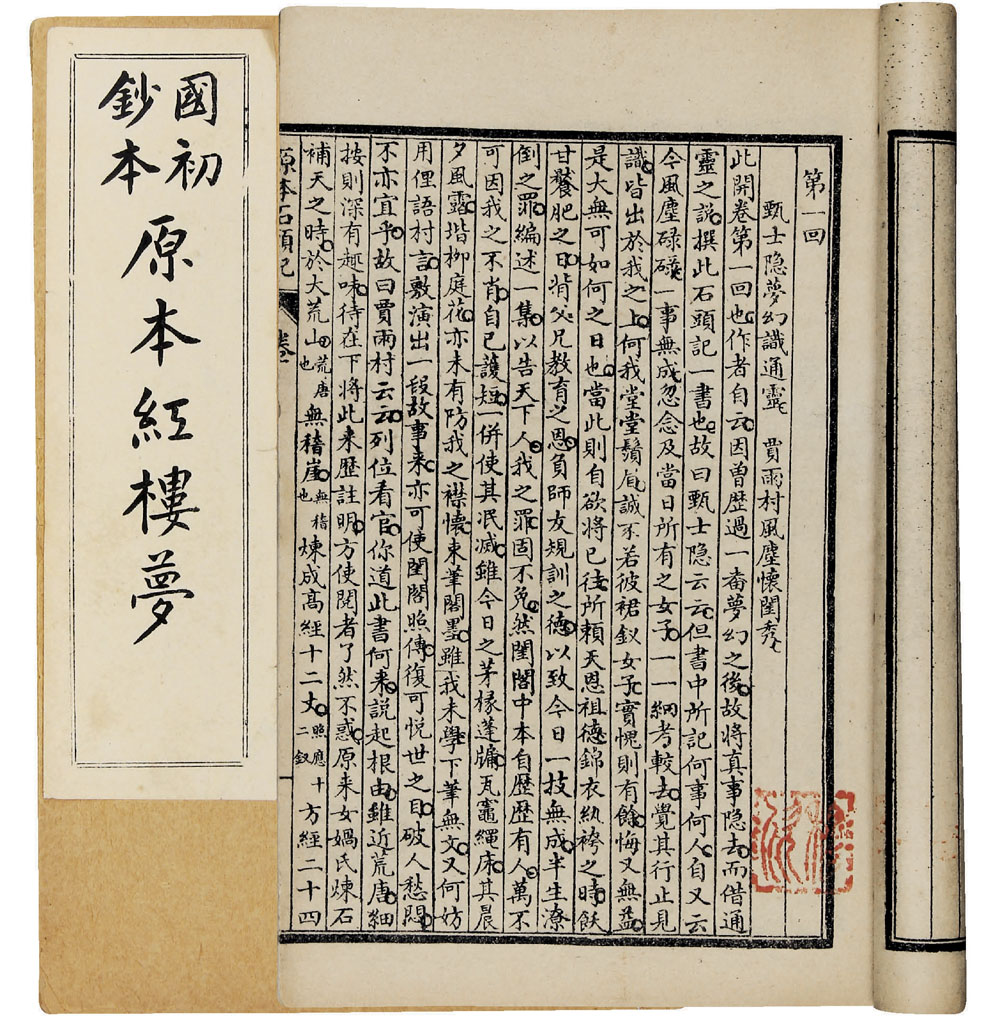 國初
鈔本
原本紅樓夢
第一回
甄士隐夢幻識通靈 賈雨村風塵懷閨秀
此開卷第一回也作者自云因曽歷過一畨夢幻之後故將真事隐去而借通
靈之說撰此石頭記一書也故曰甄士隐云云但書中所記何事何人自又云
今風塵碌碌一事無成忽念及當日所有之女子一一細考較去覺其行止見
識皆出於我之上何我堂堂鬚眉誠不若彼裙釵女子實愧則有餘悔又無益
是大無可如何之日也當此則自欲將已徃所頼天恩祖德錦衣紈袴之時飫
甘饜肥之日背父兄教育之恩負師友規訓之德以致今日一技無成半生潦
倒之罪編述一集以告天下人我之罪固不免然閨閣中本自歷歷有人萬不
可因我之不肖自己護短一併使其泯滅雖今日之茅椽蓬牖瓦竈繩床其晨
夕風露堦柳庭花亦未有防我之襟懷束筆閣墨雖我未學下筆無文又何妨
用俚語村言敷演出一段故事来亦可使閨閣照傳復可悦世之目破人愁悶
不亦宜乎故曰賈雨村云云列位看官你道此書何来說起根由雖近荒唐細
按則深有趣味待在下將此来歷註明方使閱者了然不惑原来女媧氏煉石
補天之時於大荒山荒唐也無稽崖無稽也煉成高經十二丈照應十二釵方經二十四
原本石頭記